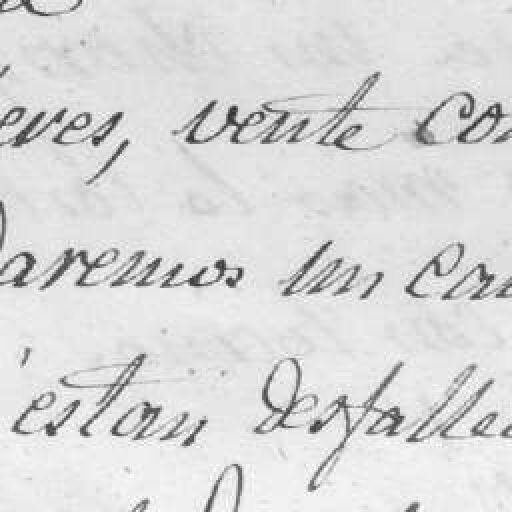 eres, vente con
Daremos un cau
estan desfallec